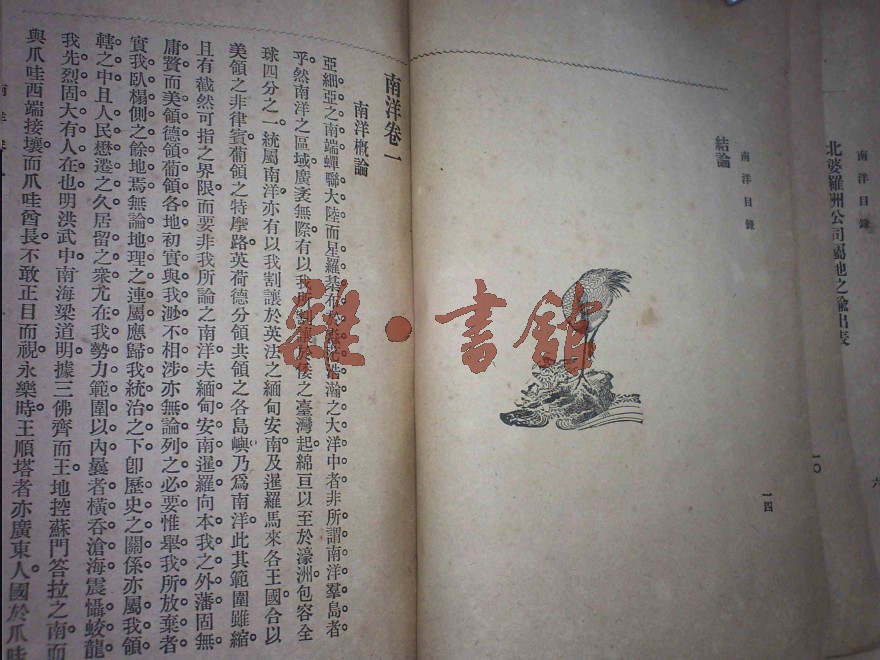 北婆羅洲公司屬地之輸出表
南洋目錄
一〇
六
南洋目錄
結論
一四
南洋卷一
南洋概論
亞細亞之南端蟬聯大陸而星羅棊布大浩瀚之大洋中者非所謂南洋羣島者
乎然南洋之區域廣袤無際有以我所割於倭之臺灣起綿亘以至於濠洲包容全
球四分之一統屬南洋亦有以我割讓於英法之緬甸安南及暹羅馬來各王國合以
美領之非律賓葡領之特摩路英荷德分領共領之各島嶼乃爲南洋此其範圍雖縮
且有截然可指之界限而要非我所論之南洋夫緬甸安南暹羅向本我之外藩固無
庸贅而美領德領葡領各地初實與我渺不相涉亦無論列之必要惟舉我所放棄者
實我臥榻側之餘地焉無論地理之連屬應歸我統治之下卽歷史之關係亦屬我領
轄之中且人民懋遷之久居留之衆尤在我勢力範圍以內曩者橫吞滄海震懾蛟龍
我先烈固大有人在也明洪武中南海梁道明據三佛齊而王地控蘇門答拉之南而
與爪哇西端接壤而爪哇酋長不敢正目而視永樂時王順塔者亦廣東人國於爪哇
雜·書館